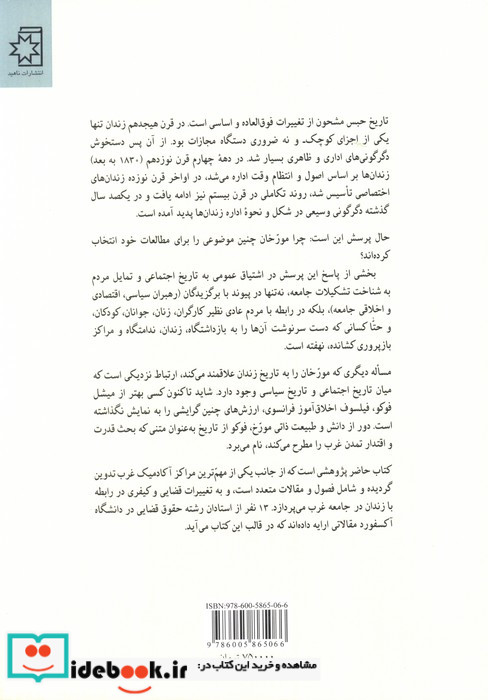 انتشارات ناهید
تاریخ حبس مشحون از تغییرات فوق‌العاده و اساسی است. در قرن هیجدهم زندان تنها
یکی از اجزای کوچک و نه ضروری دستگاه مجازات بود. از آن پس دستخوش
دگرگونی‌های اداری و ظاهری بسیار شد. در دههٔ چهارم قرن نوزدهم (۱۸۳۰ به بعد)
زندان‌ها بر اساس اصول و انتظام وقت اداره می‌شد، در اواخر قرن نوزده زندان‌های
اختصاصی تأسیس شد، روند تکاملی در قرن بیستم نیز ادامه یافت و در یکصد سال
گذشته دگرگونی وسیعی در شکل و نحوهٔ اداره زندان‌ها پدید آمده است.
حال پرسش این است: چرا مورّخان چنین موضوعی را برای مطالعات خود انتخاب
کرده‌اند؟
بخشی از پاسخ این پرسش در اشتیاق عمومی به تاریخ اجتماعی و تمایل مردم
به شناخت تشکیلات جامعه، نه‌تنها در پیوند با برگزیدگان (رهبران سیاسی، اقتصادی
و اخلاقی جامعه)، بلکه در رابطه با مردم عادی نظیر کارگران، زنان، جوانان، کودکان،
و حتّا کسانی که دست سرنوشت آن‌ها را به بازداشتگاه، زندان، ندامتگاه و مراکز
بازپروری کشانده، نهفته است.
مسأله دیگری که مورّخان را به تاریخ زندان علاقمند می‌کند، ارتباط نزدیکی است که
میان تاریخ اجتماعی و تاریخ سیاسی وجود دارد. شاید تاکنون کسی بهتر از میشل
فوکو، فیلسوف اخلاق‌آموز فرانسوی، ارزش‌های چنین گرایشی را به نمایش نگذاشته
است. دور از دانش و طبیعت ذاتی مورّخ، فوکو از تاریخ به‌عنوان متنی که بحث قدرت
و اقتدار تمدن غرب را مطرح می‌کند، نام می‌برد.
کتاب حاضر پژوهشی است که از جانب یکی از مهم‌ترین مراکز آکادمیک غرب تدوین
گردیده و شامل فصول و مقالات متعدد است، و به تغییرات قضایی و کیفری در رابطه
با زندان در جامعه غرب می‌پردازد. ۱۳ نفر از استادان رشته حقوق قضایی در دانشگاه
آکسفورد مقالاتی ارایه داده‌اند که در قالب این کتاب می‌آید.
ISBN:978-600-5865-06-6
9 786005 865066
۷۵۰۰۰۰ تومان
idebook.ir
مشاهده و خرید این کتاب در: